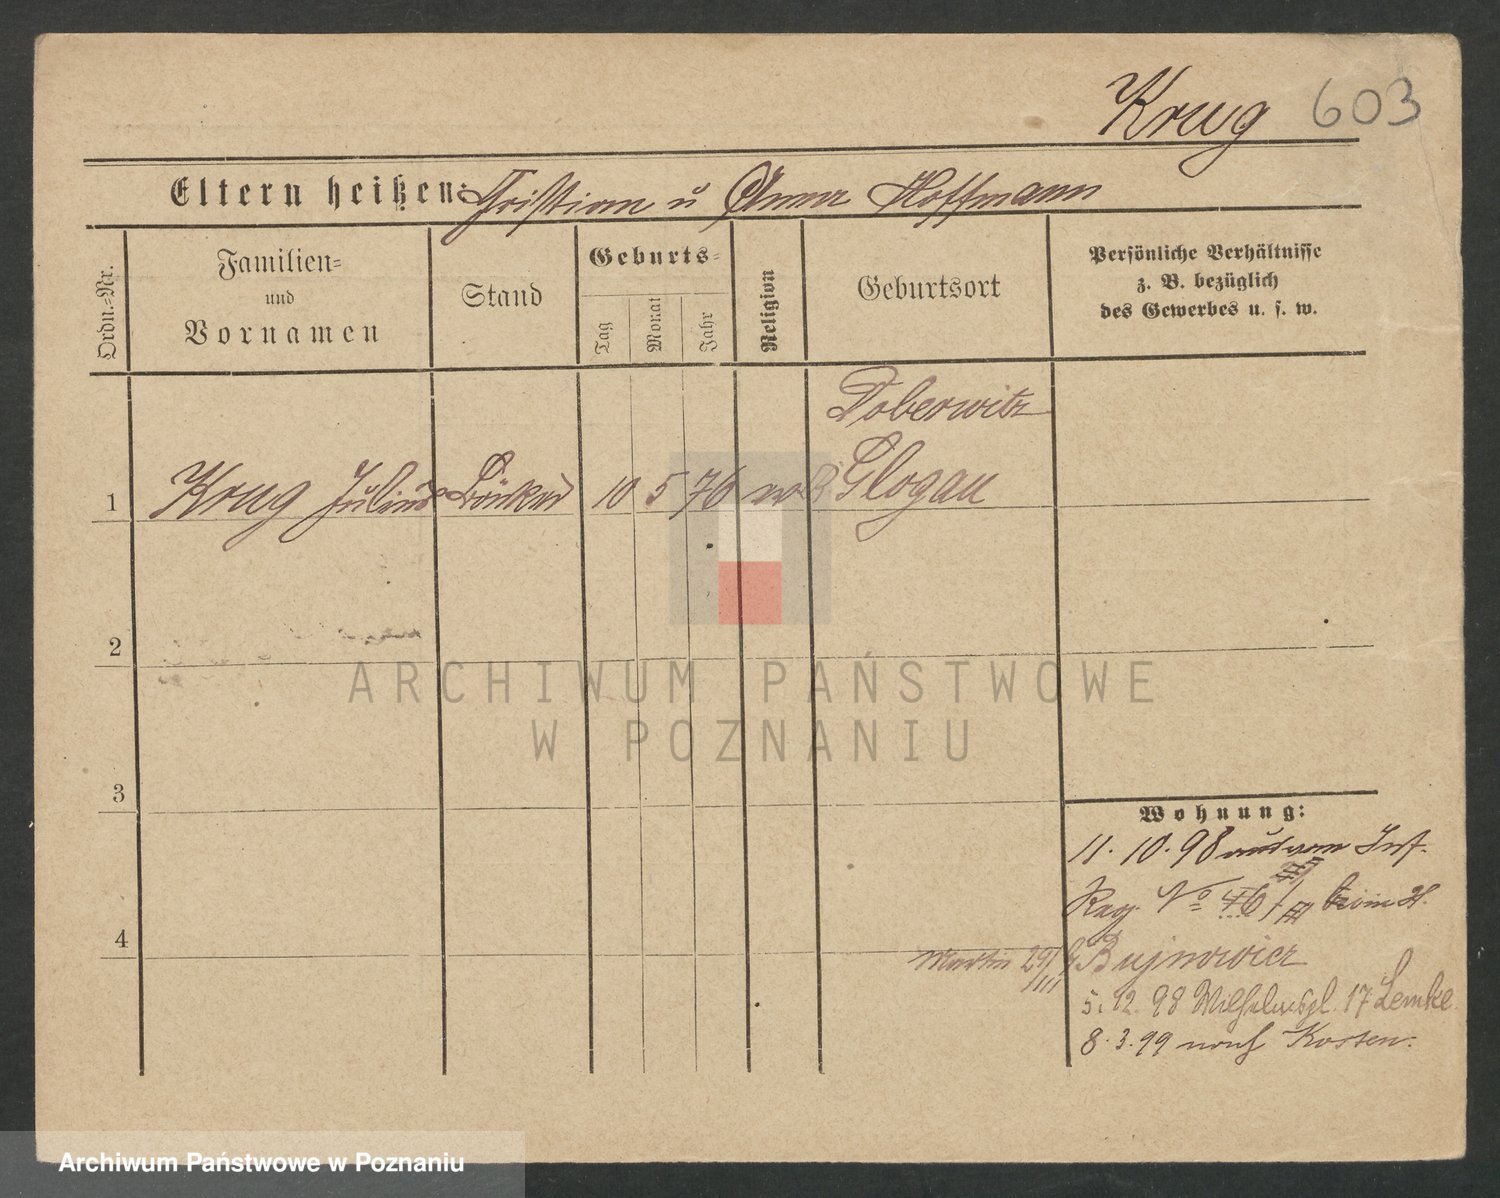 Krug 603
Eltern heißen: Christian u Anna Hoffmann
Ordn.-Nr.
Familien-
und
Vornamen
Stand
Geburts-
Tag
Monat
Jahr
Religion
Geburtsort
Persönliche Verhältnisse
z. B. bezüglich
des Gewerbes u. s. w.
Doberwitz
1 Krug Julius 10 5 76 ev Glogau
2
ARCHIWUM PAŃSTWOWE
W POZNANIU
3
Wohnung:
11. 10. 98 vom Inf.
Reg. No 46
4
Martin 29 Bujnowicz
5. 12. 98 Wilhelmspl. 17 Lemke
8. 3. 99 nach Kosten.
Archiwum Państwowe w Poznaniu